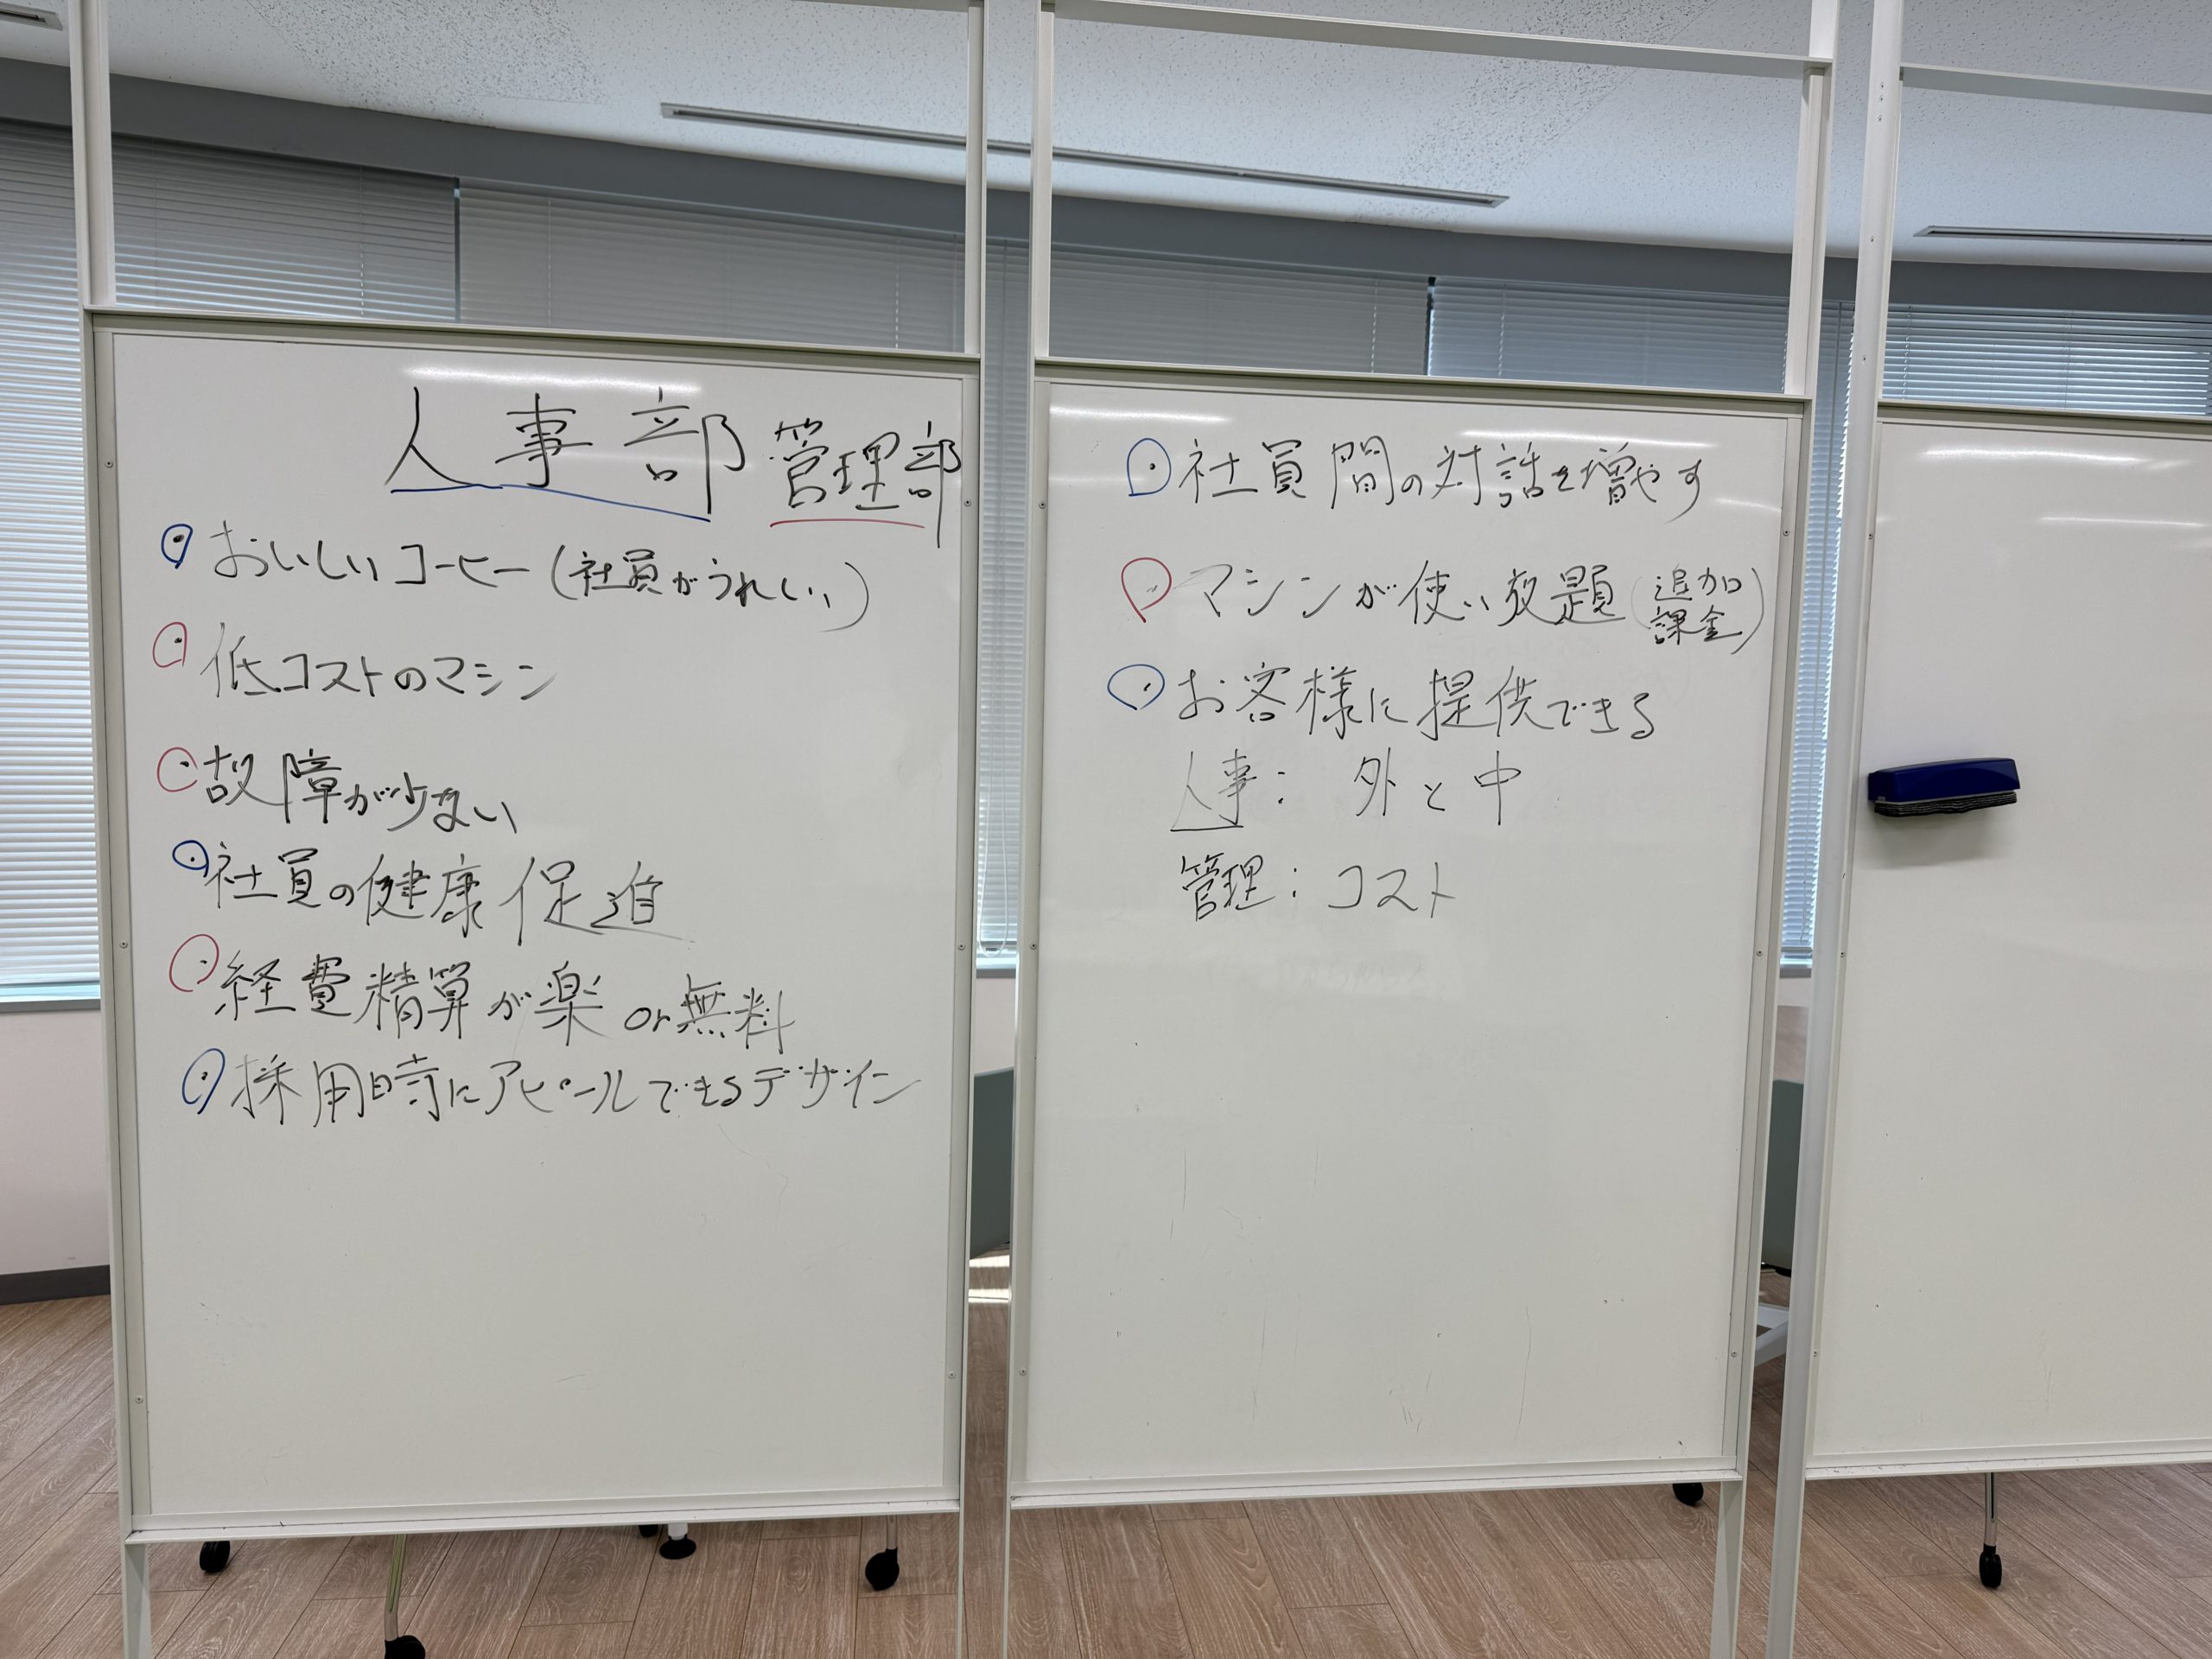 人事部 管理部
・おいしいコーヒー(社員がうれしい)
・低コストのマシン
・故障が少ない
・社員の健康促進
・経費精算が楽 or 無料
・採用時にアピールできるデザイン
・社員間の対話を増やす
・マシンが使い放題(追加課金)
・お客様に提供できる
人事: 外と中
管理: コスト